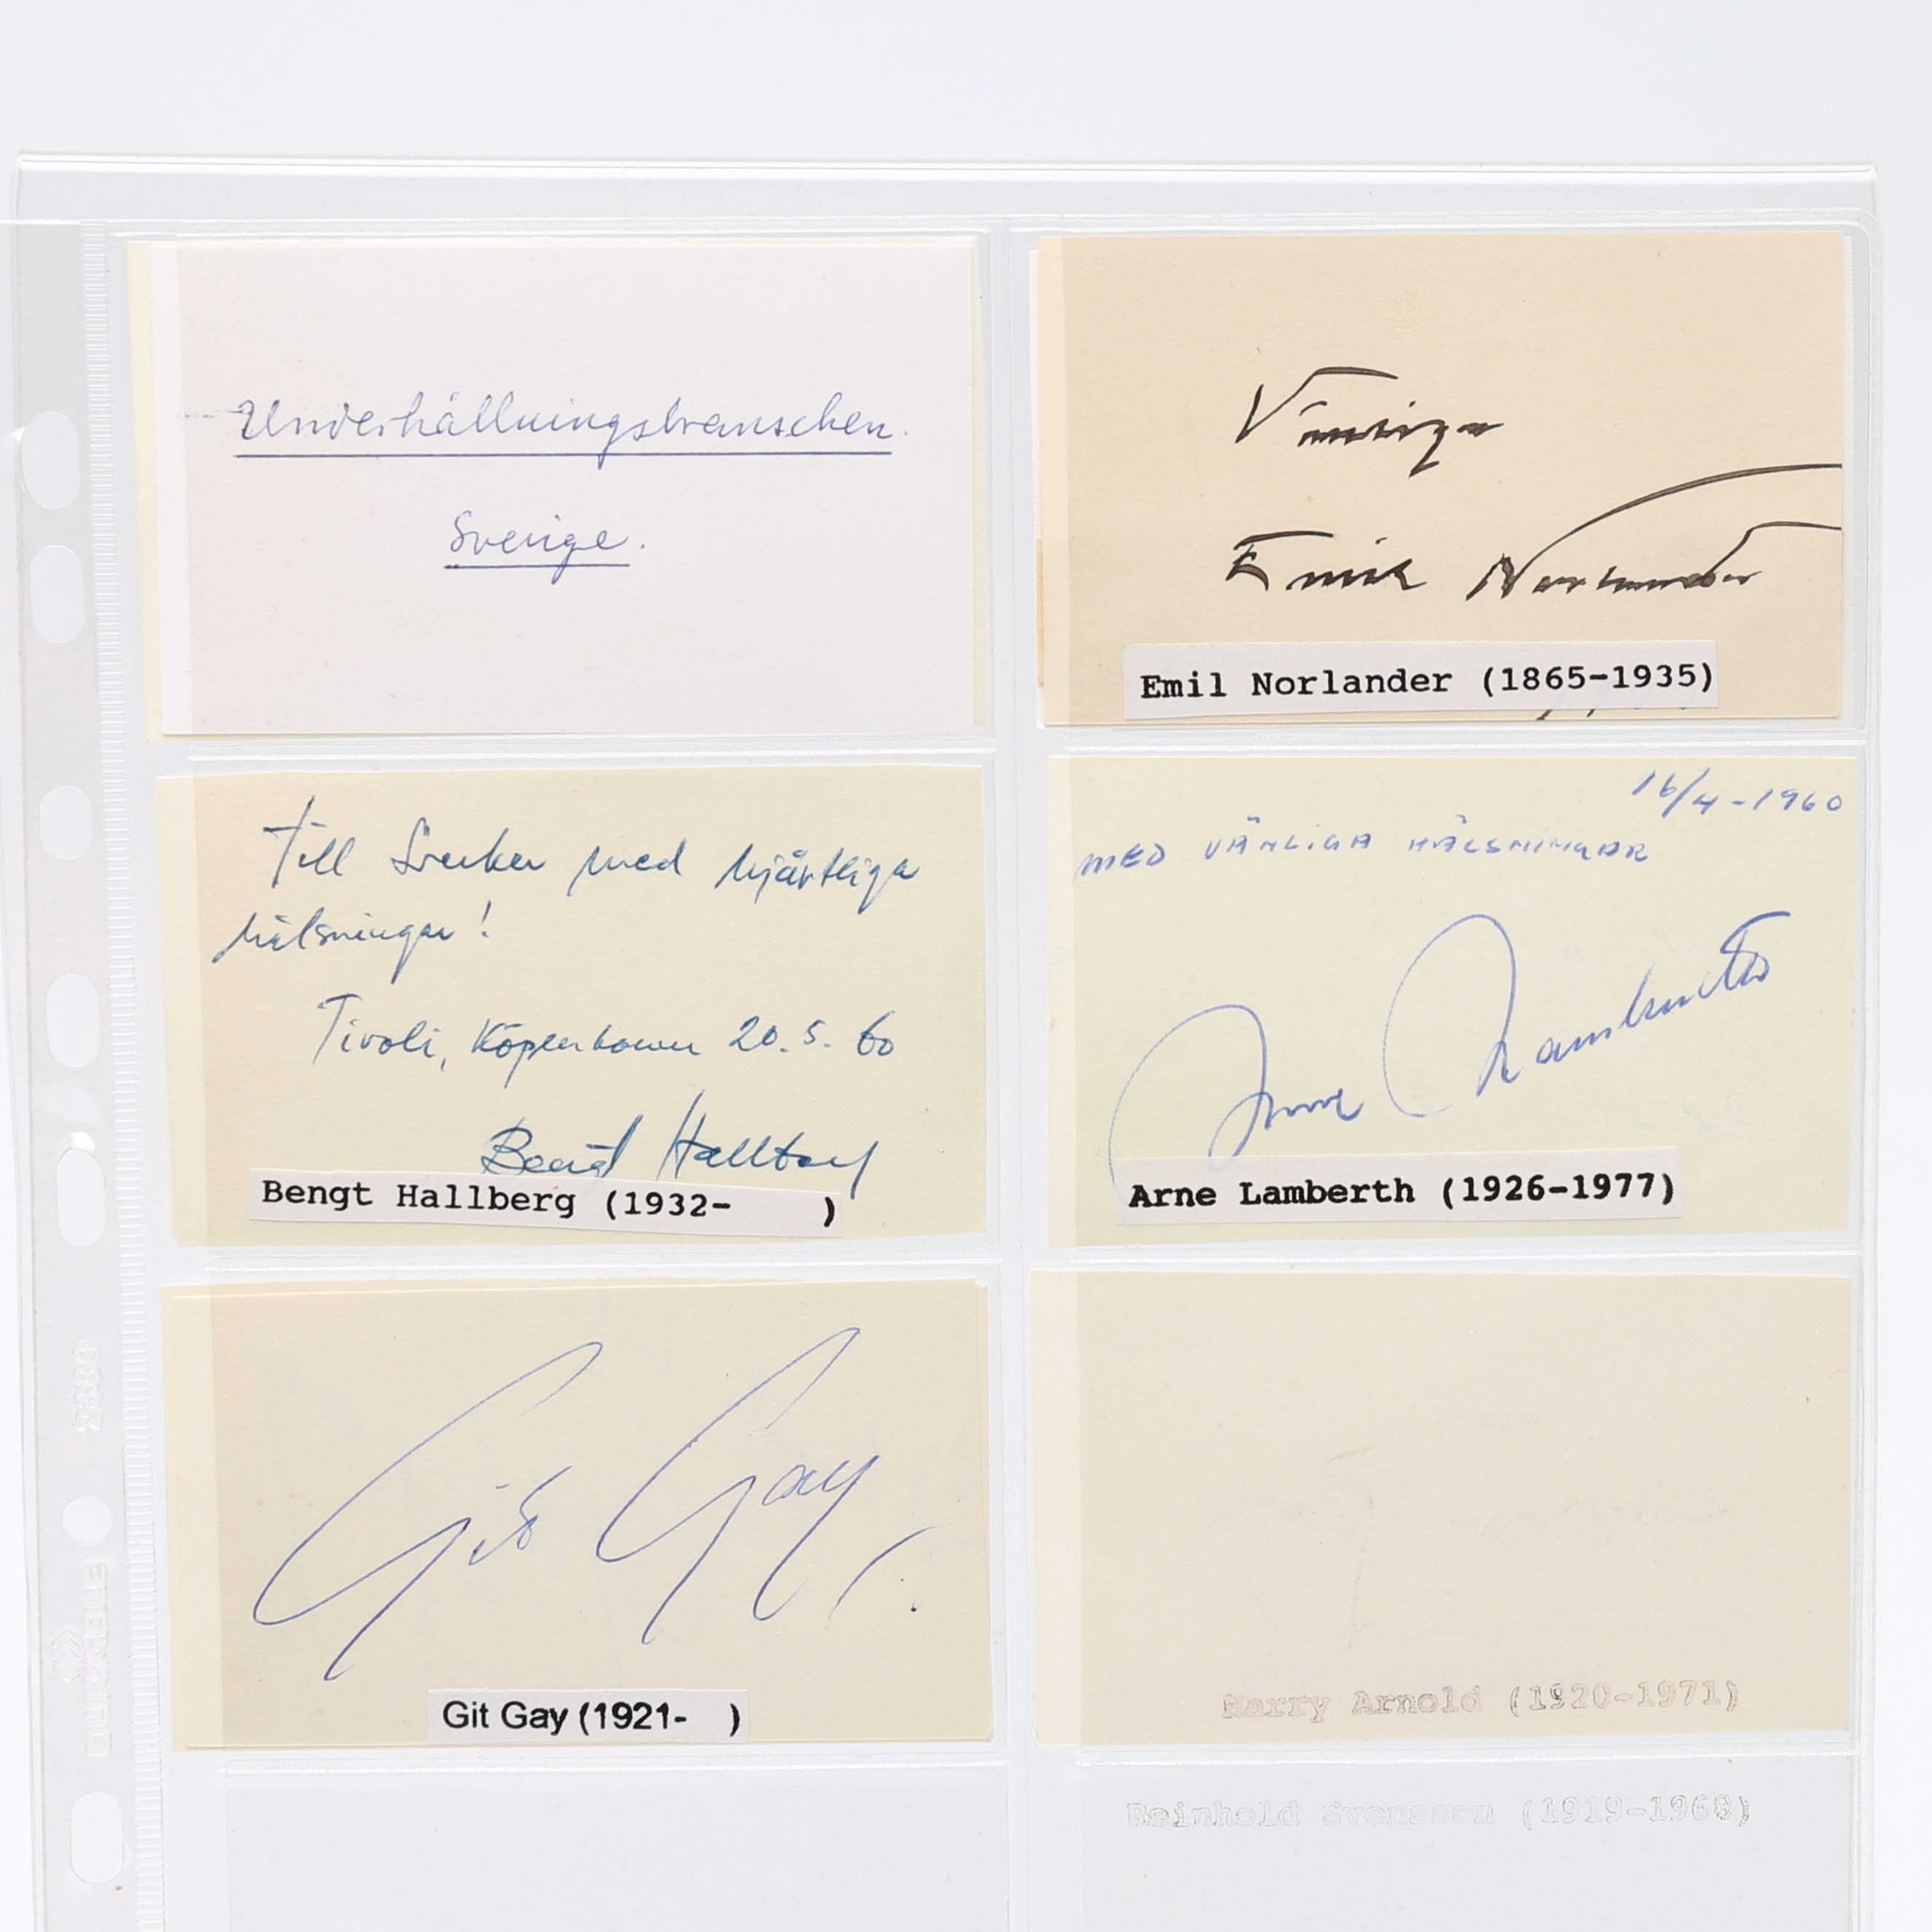 Underhållningsbranschen.
Sverige.
Vänliga
Emil Norlander
Emil Norlander (1865-1935)
Till Sverker med hjärtliga
hälsningar!
Tivoli, Köpenhamn 20.5.60
Bengt Hallberg
Bengt Hallberg (1932-    )
16/4-1960
MED VÄNLIGA HÄLSNINGAR
Arne Lamberth
Arne Lamberth (1926-1977)
Git Gay
Git Gay (1921-   )
Harry Arnold (1920-1971)
Reinhold Svensson (1919-1968)
2339
DURABLE